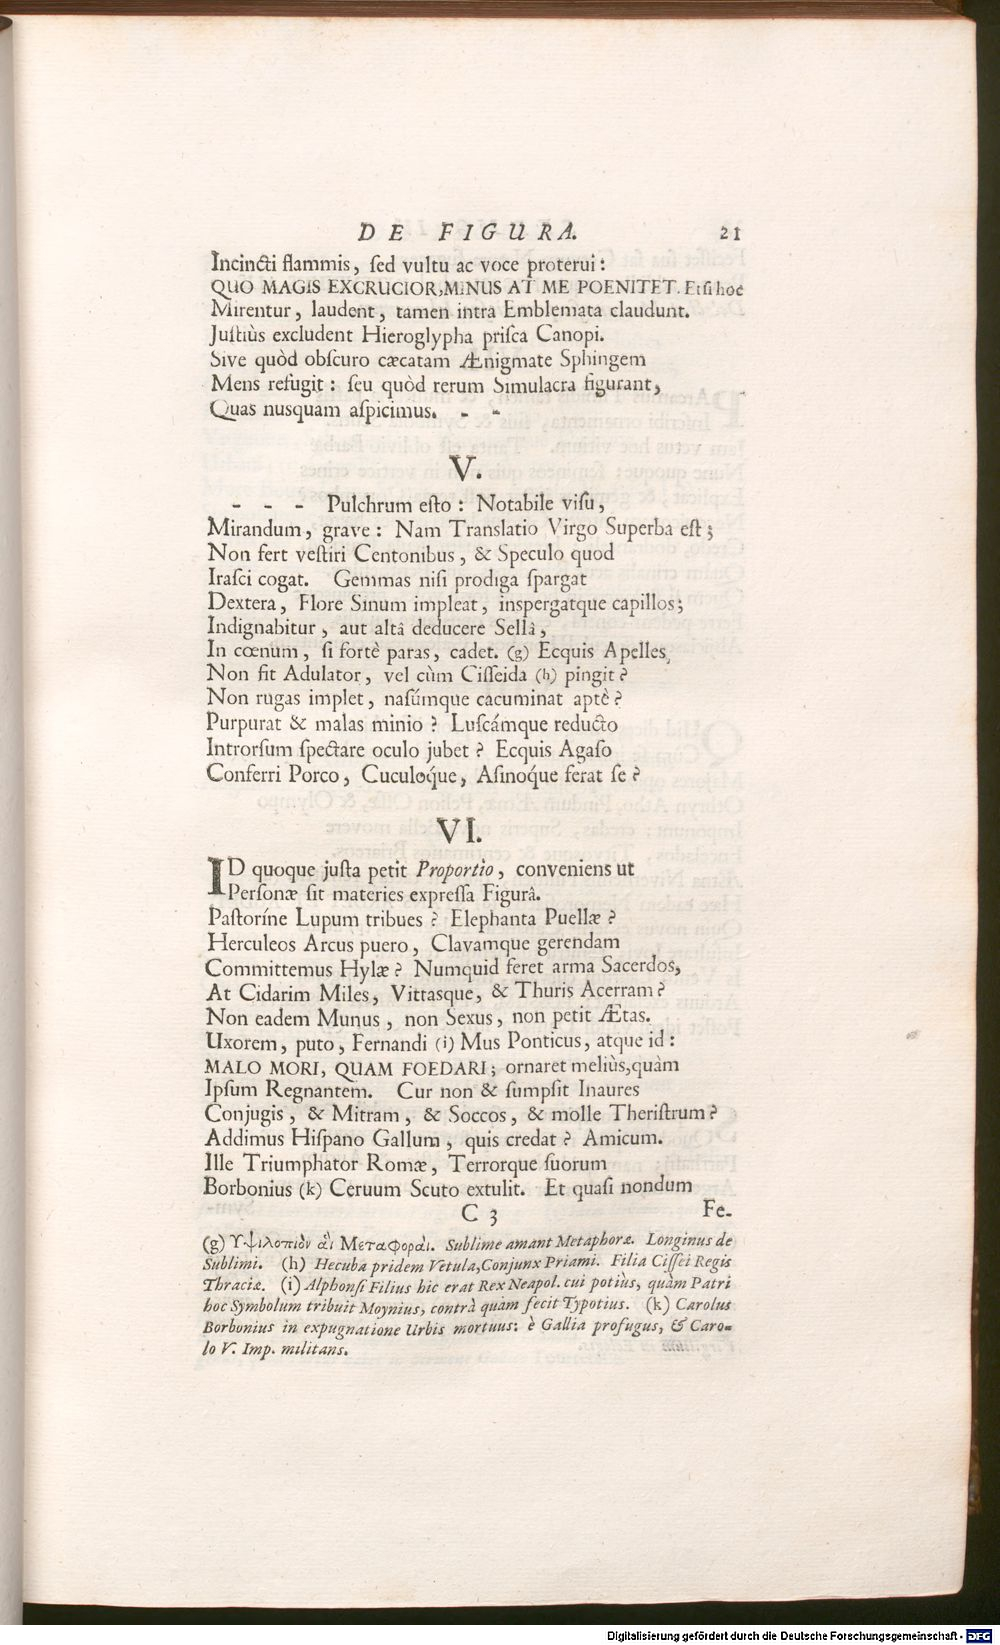 DE FIGURA. 21
Incincti flammis, ſed vultu ac voce proterui:
QUO MAGIS EXCRUCIOR, MINUS AT ME POENITET. Etſi hoc
Mirentur, laudent, tamen intra Emblemata claudunt.
Juſtiùs excludent Hieroglypha priſca Canopi.
Sive quòd obſcuro cæcatam Ænigmate Sphingem
Mens refugit: ſeu quòd rerum Simulacra figurant,
Quas nusquam aſpicimus. - -
V.
- - - Pulchrum eſto: Notabile viſu,
Mirandum, grave: Nam Translatio Virgo Superba eſt;
Non fert veſtiri Centonibus, & Speculo quod
Iraſci cogat. Gemmas niſi prodiga ſpargat
Dextera, Flore Sinum impleat, inspergatque capillos;
Indignabitur, aut altâ deducere Sellâ,
In cœnum, ſi fortè paras, cadet. (g) Ecquis Apelles,
Non fit Adulator, vel cùm Ciſſeida (h) pingit?
Non rugas implet, naſúmque cacuminat aptè?
Purpurat & malas minio? Luſcámque reducto
Introrſum ſpectare oculo jubet? Ecquis Agaſo
Conferri Porco, Cuculoq́ue, Aſinoq́ue ferat ſe?
VI.
ID quoque juſta petit Proportio, conveniens ut
Perſonæ ſit materies expreſſa Figurâ.
Paſtoríne Lupum tribues? Elephanta Puellæ?
Herculeos Arcus puero, Clavamque gerendam
Committemus Hylæ? Numquid feret arma Sacerdos,
At Cidarim Miles, Vittasque, & Thuris Acerram?
Non eadem Munus, non Sexus, non petit Ætas.
Uxorem, puto, Fernandi (i) Mus Ponticus, atque id:
MALO MORI, QUAM FOEDARI; ornaret meliùs, quàm
Ipſum Regnantem. Cur non & ſumpſit Inaures
Conjugis, & Mitram, & Soccos, & molle Theriſtrum?
Addimus Hiſpano Gallum, quis credat? Amicum.
Ille Triumphator Romæ, Terrorque ſuorum
Borbonius (k) Ceruum Scuto extulit. Et quaſi nondum
C 3 Fe-
(g) Υψιλοπιὸν ἁὶ Μεταφορὰι. Sublime amant Metaphoræ. Longinus de
Sublimi. (h) Hecuba pridem Vetula, Conjunx Priami. Filia Ciſſei Regis
Thraciæ. (i) Alphonſi Filius hic erat Rex Neapol. cui potiùs, quàm Patri
hoc Symbolum tribuit Moynius, contrà quàm fecit Typotius. (k) Carolus
Borbonius in expugnatione Urbis mortuus: è Gallia profugus, & Caro-
lo V. Imp. militans.
Digitalisierung gefördert durch die Deutsche Forschungsgemeinschaft - DFG